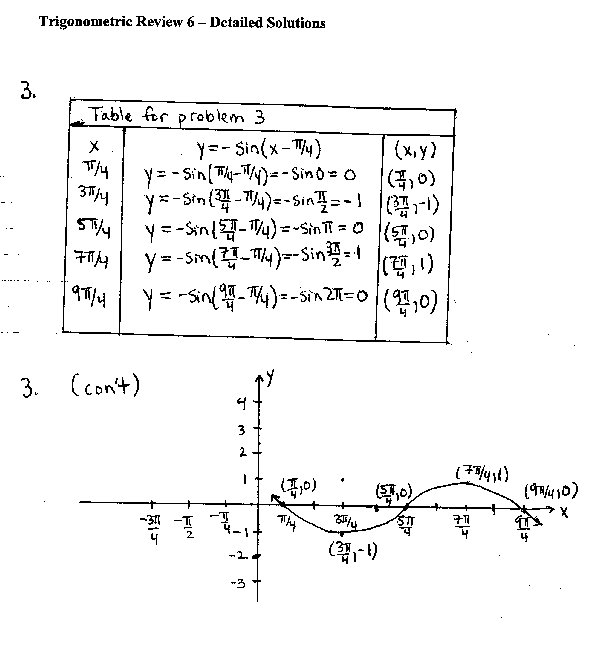 Trigonometric Review 6 – Detailed Solutions
3.
Table for problem 3
x y=-sin(x-π/4) (x,y)
π/4 y=-sin(π/4-π/4)=-sin0=0 (π/4,0)
3π/4 y=-sin(3π/4-π/4)=-sinπ/2=-1 (3π/4,-1)
5π/4 y=-sin(5π/4-π/4)=-sinπ=0 (5π/4,0)
7π/4 y=-sin(7π/4-π/4)=-sin3π/2=1 (7π/4,1)
9π/4 y=-sin(9π/4-π/4)=-sin2π=0 (9π/4,0)
3. (con't)
y
4
3
2
1
(π/4,0) (5π/4,0) (7π/4,1) (9π/4,0)
-3π/4 -π/2 -π/4 π/4 3π/4 5π/4 7π/4 9π/4 x
-1
(3π/4,-1)
-2
-3